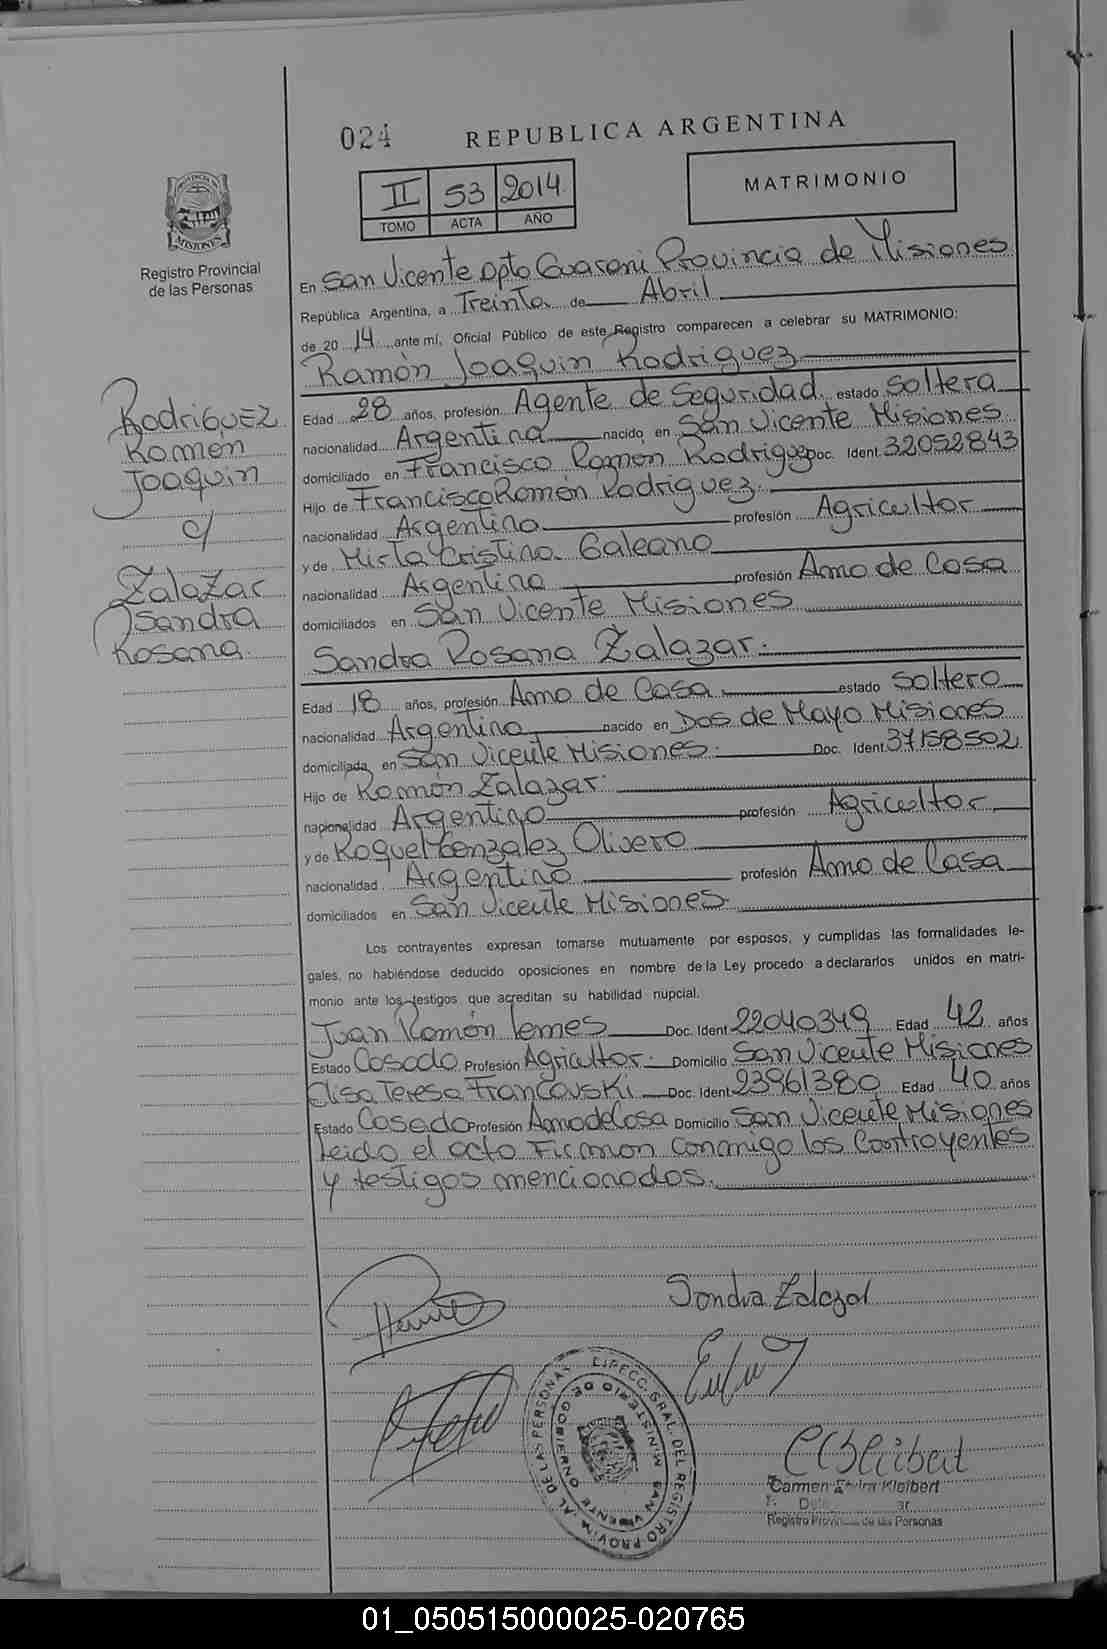 024
REPUBLICA ARGENTINA
II 53 2014
TOMO ACTA AÑO
MATRIMONIO
MISIONES
Registro Provincial
de las Personas
En San Vicente Dpto Guarani Provincia de Misiones
República Argentina, a Treinta de Abril
de 20 14 ante mí, Oficial Público de este Registro comparecen a celebrar su MATRIMONIO:
Ramón Joaquin Rodriguez
Edad 28 años, profesión Agente de Seguridad estado Soltera
nacionalidad Argentina nacido en San Vicente Misiones
domiciliado en Francisco Ramon Rodriguez Doc. Ident. 32052843
Hijo de Francisco Ramón Rodriguez.
nacionalidad Argentina profesión Agricultor
y de Mirta Cristina Galeano
nacionalidad Argentina profesión Ama de Casa
domiciliados en San Vicente Misiones
Sandra Rosana Zalazar.
Edad 18 años, profesión Ama de Casa estado Soltero
nacionalidad Argentina nacido en Dos de Mayo Misiones
domiciliada en San Vicente Misiones. Doc. Ident. 37158502
Hijo de Ramón Zalazar.
nacionalidad Argentino profesión Agricultor
y de Raquel Gonzalez Olivero
nacionalidad Argentina profesión Ama de Casa
domiciliados en San Vicente Misiones.
Los contrayentes expresan tomarse mutuamente por esposos, y cumplidas las formalidades le-
gales, no habiéndose deducido oposiciones en nombre de la Ley procedo a declararlos unidos en matri-
monio ante los testigos que acreditan su habilidad nupcial.
Juan Ramón Lemes Doc. Ident 22040349 Edad 42 años
Estado Casado Profesión Agricultor. Domicilio San Vicente Misiones
Elisa Teresa Francovski Doc. Ident 23961380 Edad 40 años
Estado Casada Profesión Ama de Casa Domicilio San Vicente Misiones
Leida el acta Firman conmigo los Contrayentes
y testigos mencionados.
Rodriguez
Ramón
Joaquin
c/
Zalazar
Sandra
Rosana.
Sandra Zalazar
DIRECC. GRAL. DEL REGISTRO PROVINCIAL DE LAS PERSONAS
MINISTERIO DE GOBIERNO
SAN VICENTE
Carmen Kleibert
Registro de las Personas
01_050515000025-020765